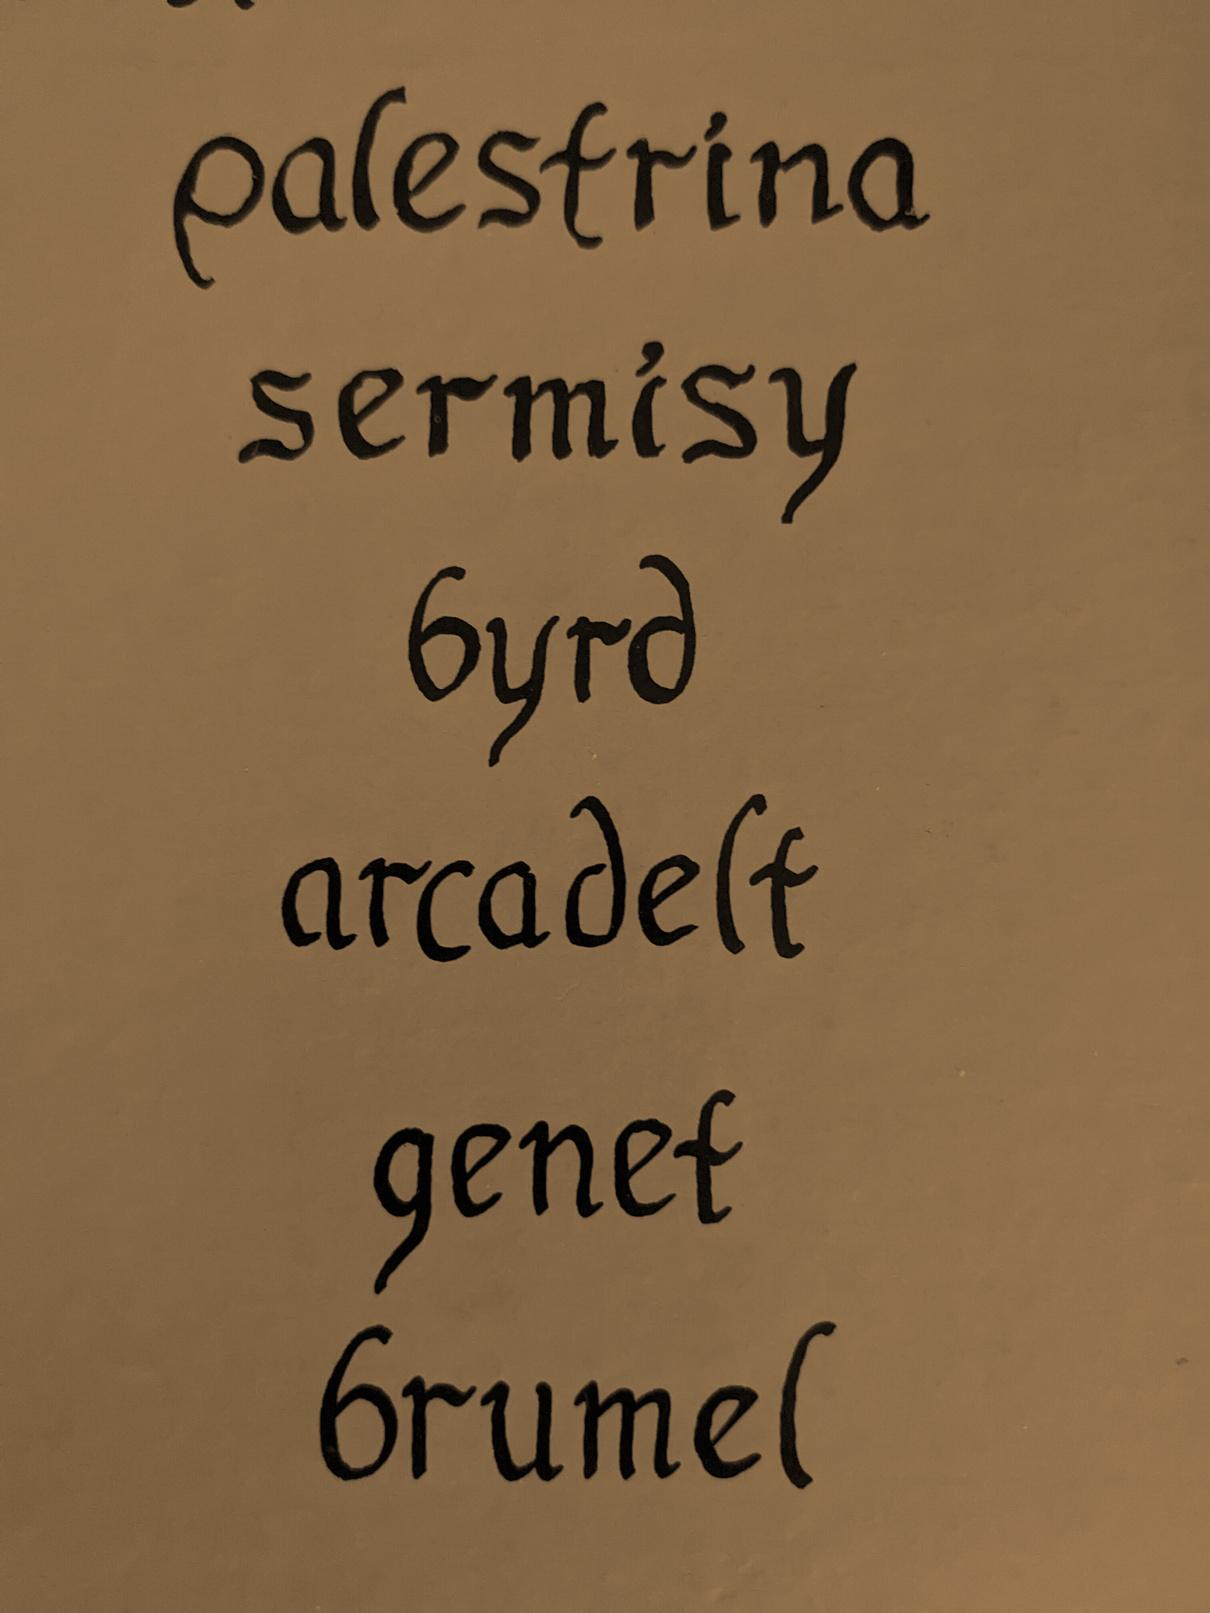 palestrina
sermisy
byrd
arcadelt
genet
brumel